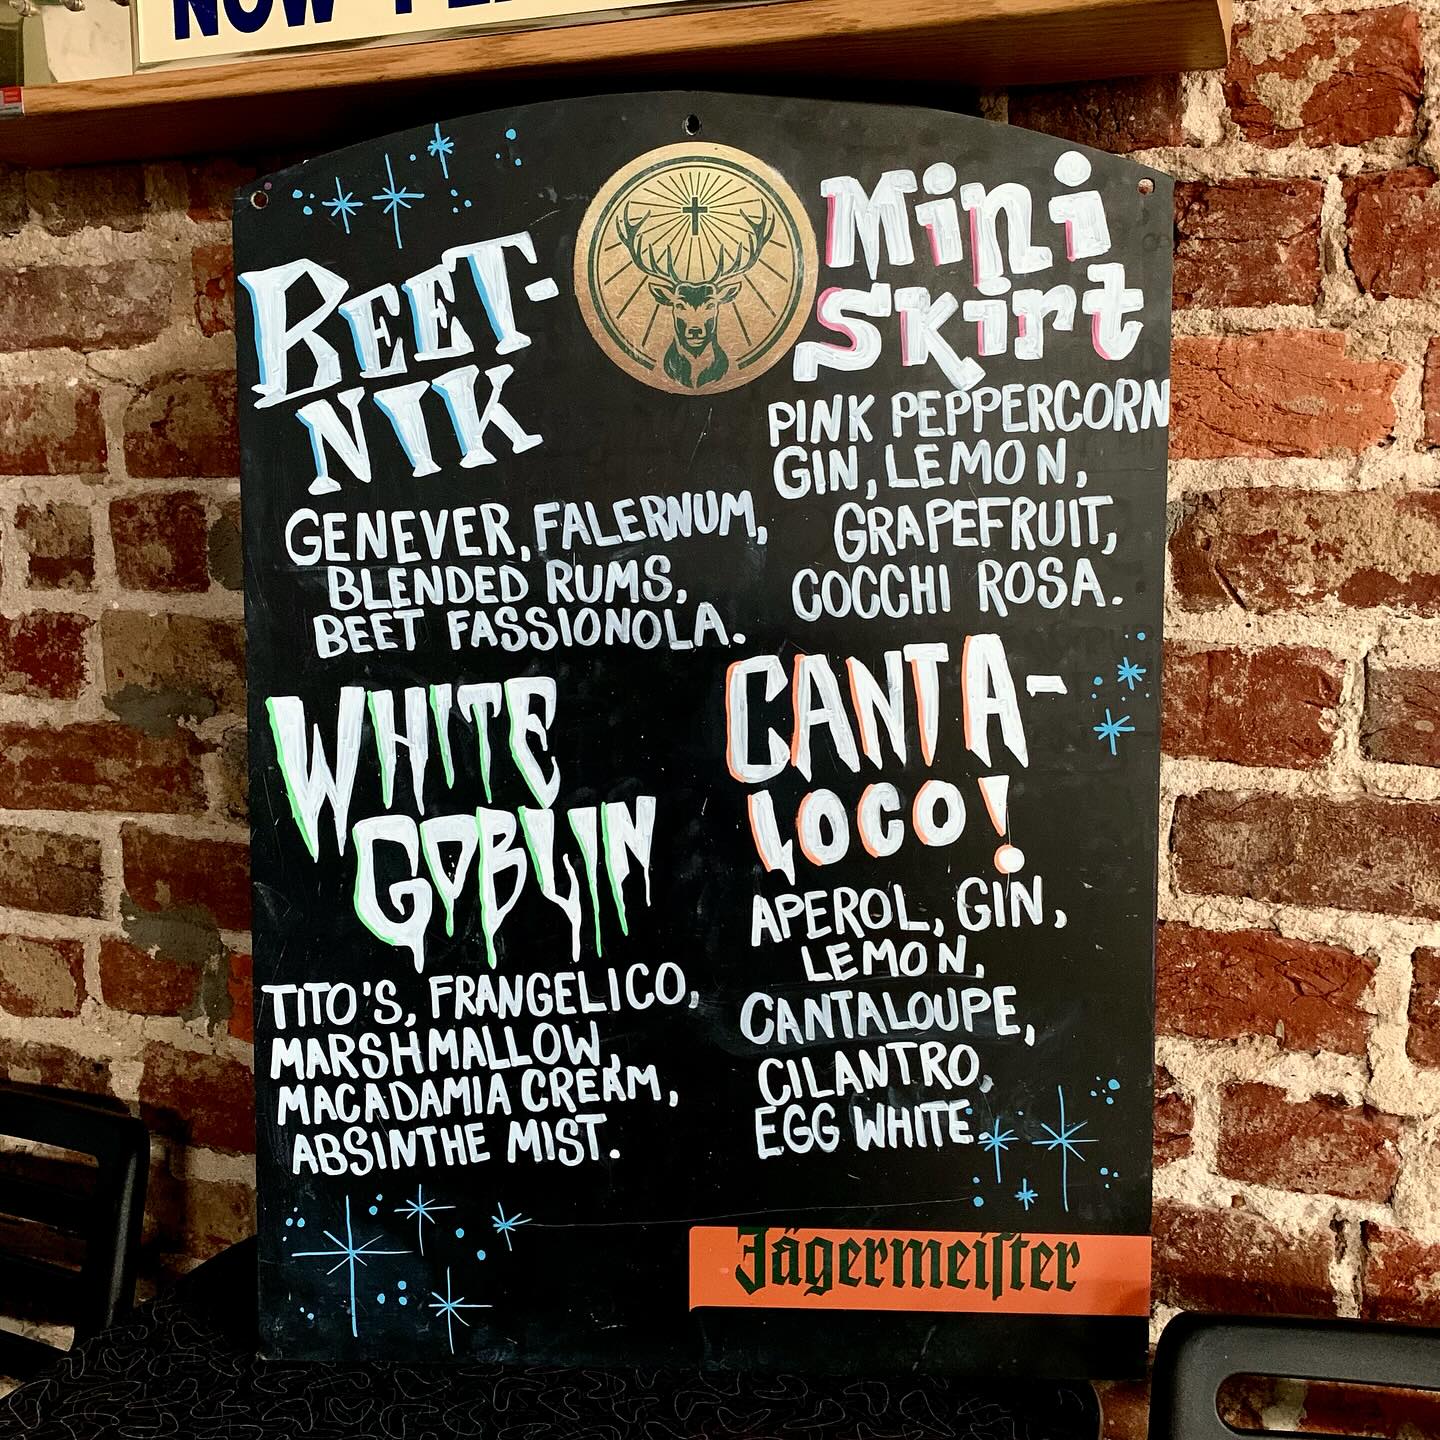 NOW
BEET-
NIK
GENEVER, FALERNUM,
BLENDED RUMS,
BEET FASSIONOLA.
Mini
Skirt
PINK PEPPERCORN
GIN, LEMON,
GRAPEFRUIT,
COCCHI ROSA.
WHITE
GOBLIN
TITO'S, FRANGELICO,
MARSHMALLOW,
MACADAMIA CREAM,
ABSINTHE MIST.
CANTA-
LOCO!
APEROL, GIN,
LEMON,
CANTALOUPE,
CILANTRO,
EGG WHITE.
Jägermeiſter